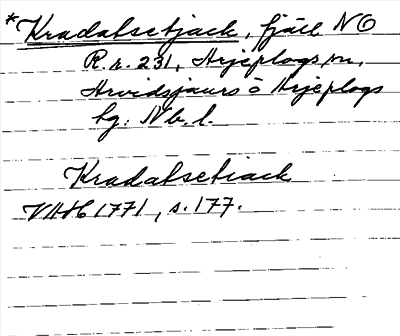 *Kradatsetjack, fjäll NO
R.r. 231, Arjeplogs sn,
Arvidsjaurs o Arjeplogs
tg: Nb. l.
Kradatsetiack
VHAH 1771, s. 177.